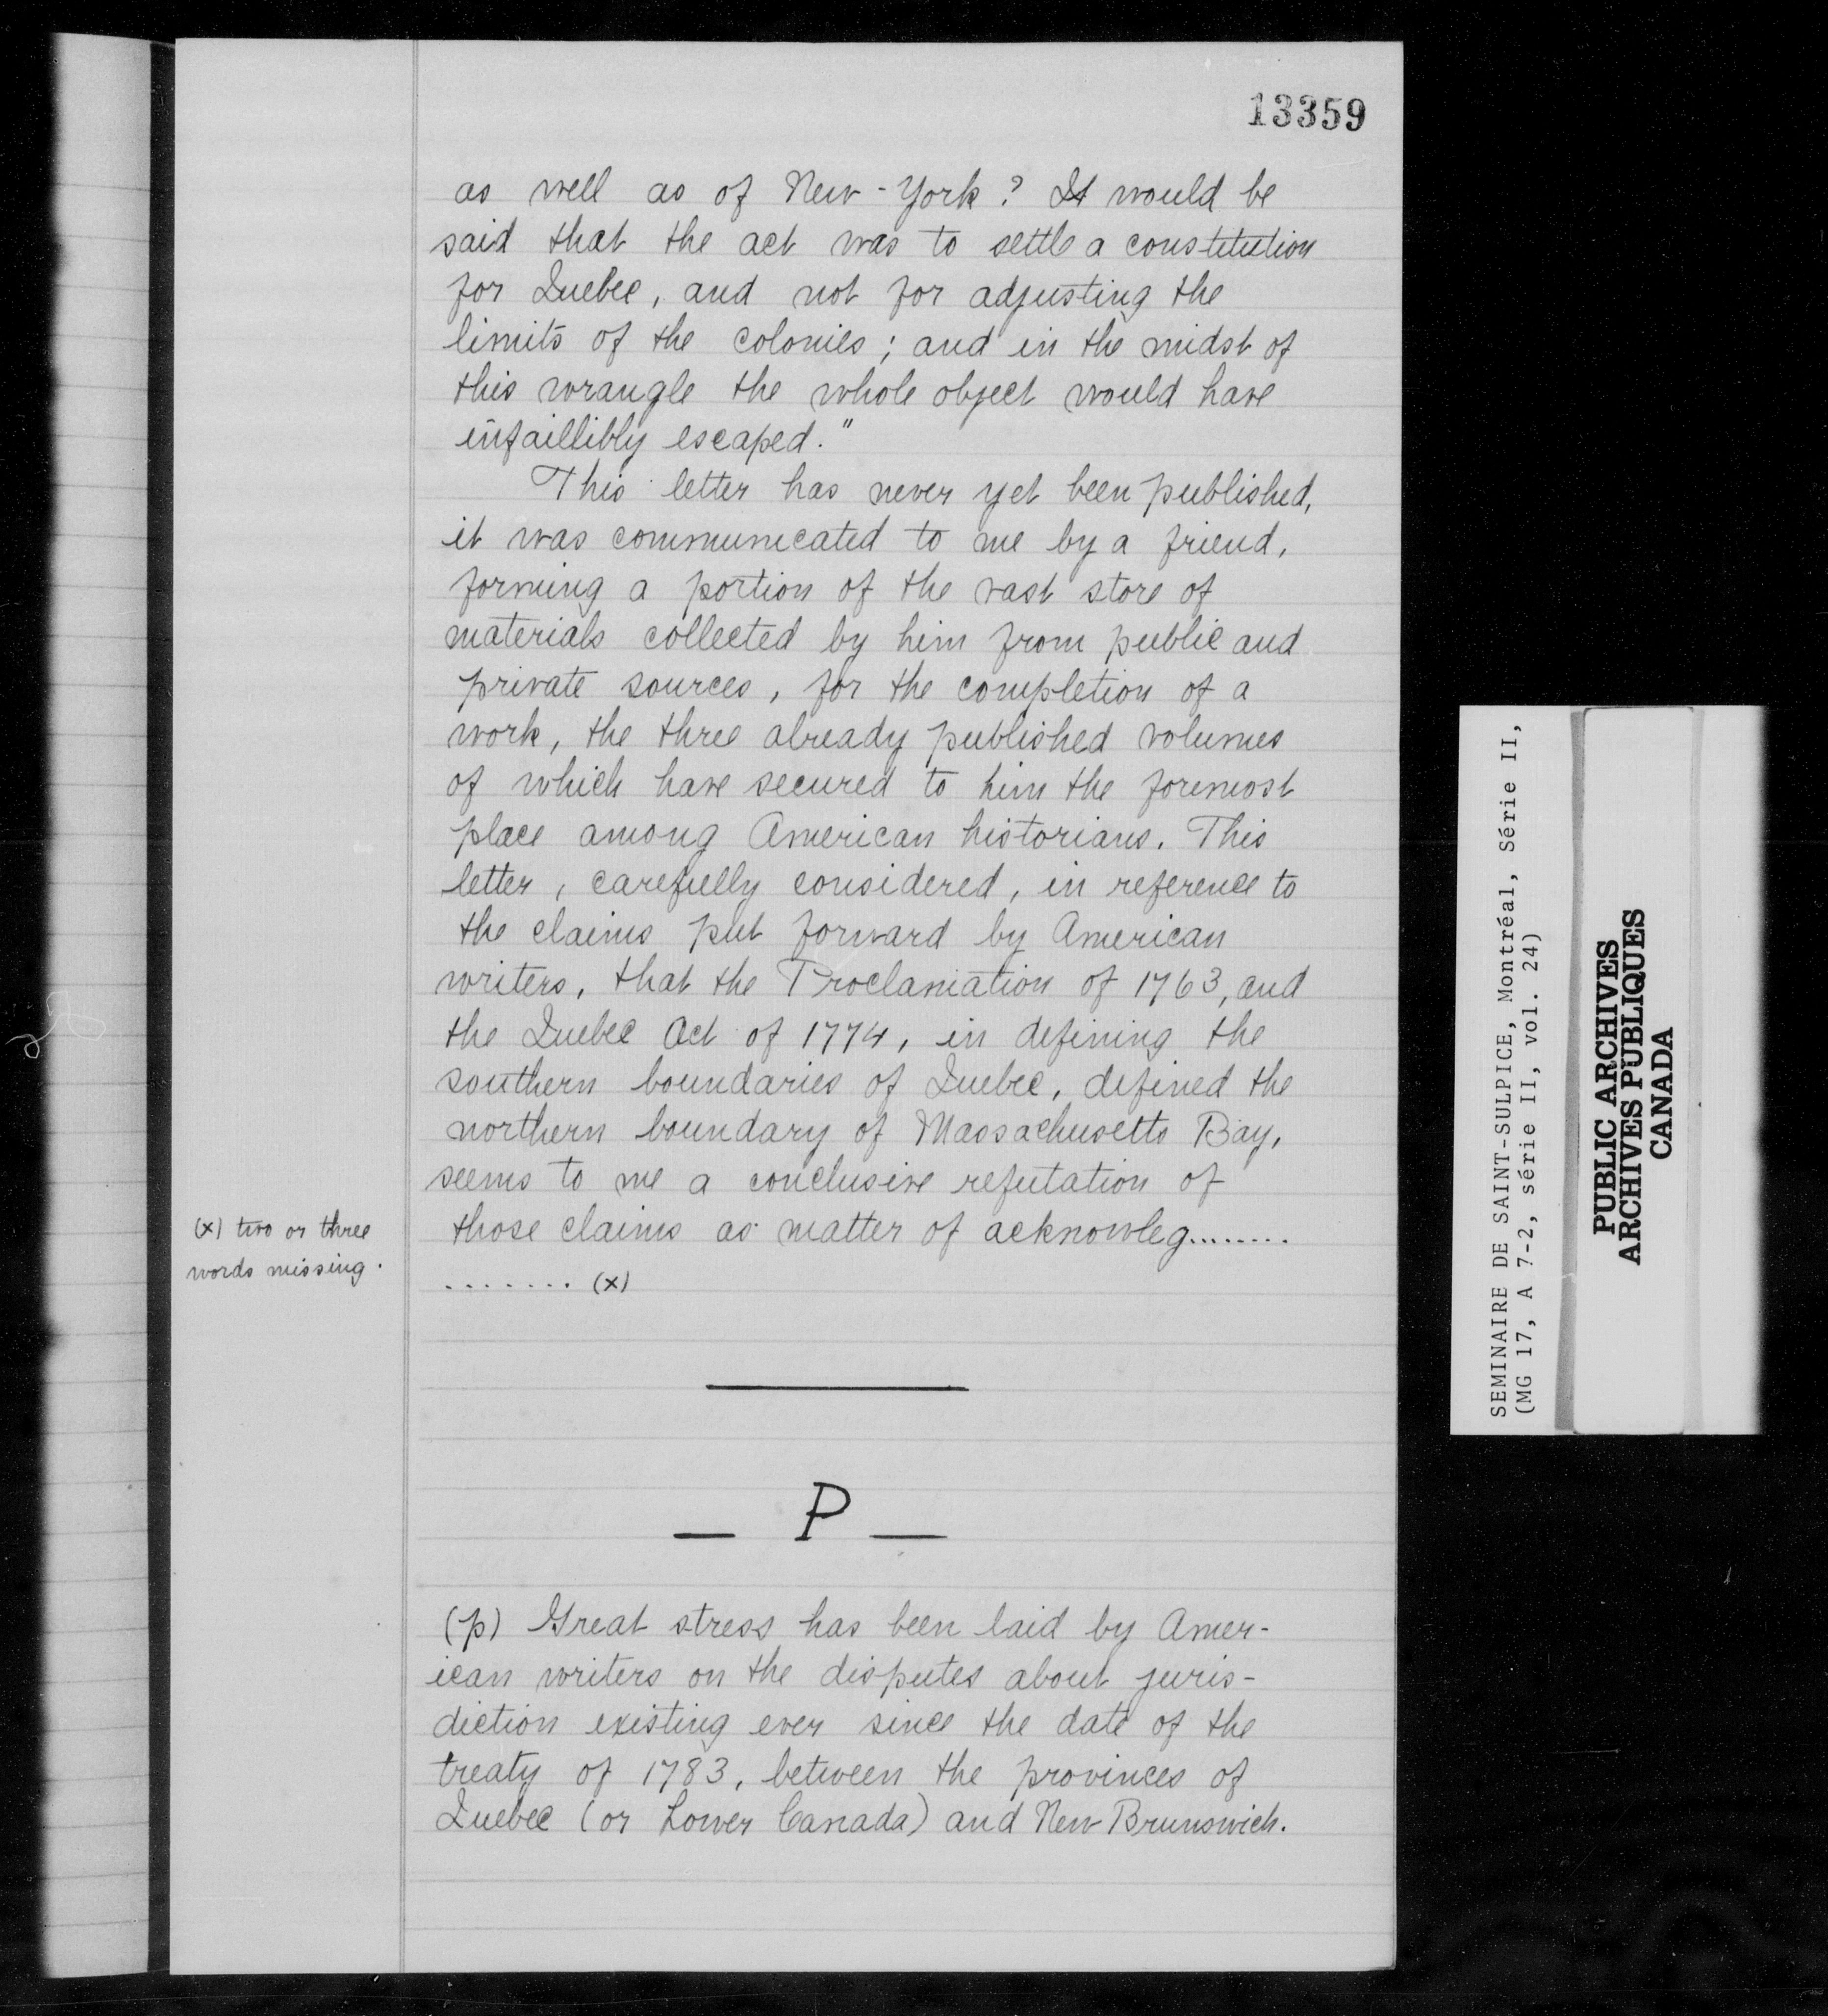 13359
as well as of New-York? It would be
said that the act was to settle a constitution
for Quebec, and not for adjusting the
limits of the colonies; and in the midst of
this wrangle the whole object would have
infaillibly escaped."
This letter has never yet been published,
it was communicated to me by a friend,
forming a portion of the vast store of
materials collected by him from public and
private sources, for the completion of a
work, the three already published volumes
of which have secured to him the foremost
place among American historians. This
letter, carefully considered, in reference to
the claims put forward by American
writers, that the Proclamation of 1763, and
the Quebec Act of 1774, in defining the
southern boundaries of Quebec, defined the
northern boundary of Massachusetts Bay,
seems to me a conclusive refutation of
those claims as matter of acknowleg........
....... (x)
(x) two or three
words missing.
— P —
(p) Great stress has been laid by Amer-
ican writers on the disputes about juris-
diction existing ever since the date of the
treaty of 1783, between the provinces of
Quebec (or Lower Canada) and New Brunswick.
SEMINAIRE DE SAINT-SULPICE, Montréal, Série II,
(MG 17, A 7-2, série II, vol. 24)
PUBLIC ARCHIVES
ARCHIVES PUBLIQUES
CANADA